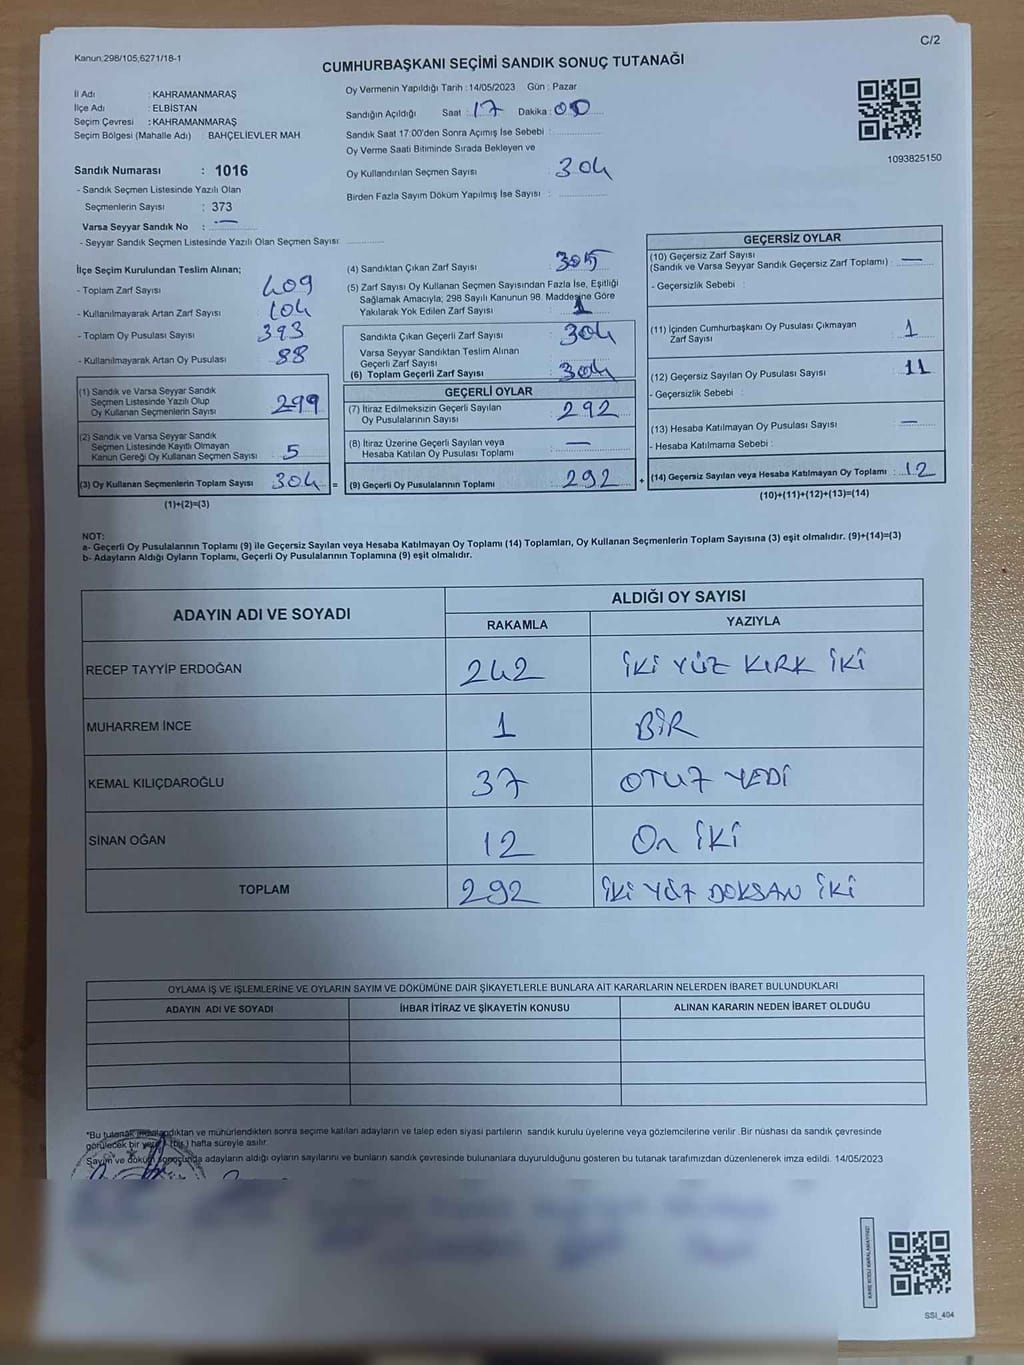 C/2
Kanun,298/105,6271/18-1
CUMHURBAŞKANI SEÇİMİ SANDIK SONUÇ TUTANAĞI
İl Adı : KAHRAMANMARAŞ
İlçe Adı : ELBİSTAN
Seçim Çevresi : KAHRAMANMARAŞ
Seçim Bölgesi (Mahalle Adı) : BAHÇELİEVLER MAH.
Sandık Numarası : 1016
- Sandık Seçmen Listesinde Yazılı Olan
Seçmenlerin Sayısı : 373
Varsa Seyyar Sandık No : —
- Seyyar Sandık Seçmen Listesinde Yazılı Olan Seçmen Sayısı
Oy Vermenin Yapıldığı Tarih : 14/05/2023 Gün : Pazar
Sandığın Açıldığı Saat : 17 Dakika : 00
Sandık Saat 17:00'den Sonra Açımış İse Sebebi :
Oy Verme Saati Bitiminde Sırada Bekleyen ve
Oy Kullandırılan Seçmen Sayısı : 304
Birden Fazla Sayım Döküm Yapılmış İse Sayısı :
1093825150
İlçe Seçim Kurulundan Teslim Alınan;
- Toplam Zarf Sayısı : 409
- Kullanılmayarak Artan Zarf Sayısı : 104
- Toplam Oy Pusulası Sayısı : 393
- Kullanılmayarak Artan Oy Pusulası : 88
(1) Sandık ve Varsa Seyyar Sandık
Seçmen Listesinde Yazılı Olup
Oy Kullanan Seçmenlerin Sayısı : 299
(2) Sandık ve Varsa Seyyar Sandık
Seçmen Listesinde Kayıtlı Olmayan
Kanun Gereği Oy Kullanan Seçmen Sayısı : 5
(3) Oy Kullanan Seçmenlerin Toplam Sayısı : 304 =
(1)+(2)=(3)
(4) Sandıktan Çıkan Zarf Sayısı : 305
(5) Zarf Sayısı Oy Kullanan Seçmen Sayısından Fazla İse, Eşitliği
Sağlamak Amacıyla; 298 Sayılı Kanunun 98. Maddesine Göre
Yakılarak Yok Edilen Zarf Sayısı : 1
Sandıkta Çıkan Geçerli Zarf Sayısı : 304
Varsa Seyyar Sandıktan Teslim Alınan
Geçerli Zarf Sayısı
(6) Toplam Geçerli Zarf Sayısı : 304
GEÇERLİ OYLAR
(7) İtiraz Edilmeksizin Geçerli Sayılan
Oy Pusulalarının Sayısı : 292
(8) İtiraz Üzerine Geçerli Sayılan veya
Hesaba Katılan Oy Pusulası Toplamı : —
(9) Geçerli Oy Pusulalarının Toplamı : 292 +
GEÇERSİZ OYLAR
(10) Geçersiz Zarf Sayısı
(Sandık ve Varsa Seyyar Sandık Geçersiz Zarf Toplamı) : —
- Geçersizlik Sebebi :
(11) İçinden Cumhurbaşkanı Oy Pusulası Çıkmayan
Zarf Sayısı : 1
(12) Geçersiz Sayılan Oy Pusulası Sayısı : 11
- Geçersizlik Sebebi :
(13) Hesaba Katılmayan Oy Pusulası Sayısı : —
- Hesaba Katılmama Sebebi :
(14) Geçersiz Sayılan veya Hesaba Katılmayan Oy Toplamı : 12
(10)+(11)+(12)+(13)=(14)
NOT:
a- Geçerli Oy Pusulalarının Toplamı (9) ile Geçersiz Sayılan veya Hesaba Katılmayan Oy Toplamı (14) Toplamları, Oy Kullanan Seçmenlerin Toplam Sayısına (3) eşit olmalıdır. (9)+(14)=(3)
b- Adayların Aldığı Oyların Toplamı, Geçerli Oy Pusulalarının Toplamına (9) eşit olmalıdır.
ADAYIN ADI VE SOYADI
ALDIĞI OY SAYISI
RAKAMLA YAZIYLA
RECEP TAYYİP ERDOĞAN 242 İKİ YÜZ KIRK İKİ
MUHARREM İNCE 1 BİR
KEMAL KILIÇDAROĞLU 37 OTUZ YEDİ
SİNAN OĞAN 12 On İKİ
TOPLAM 292 İKİ YÜZ DOKSAN İKİ
OYLAMA İŞ VE İŞLEMLERİNE VE OYLARIN SAYIM VE DÖKÜMÜNE DAİR ŞİKAYETLERLE BUNLARA AİT KARARLARIN NELERDEN İBARET BULUNDUKLARI
ADAYIN ADI VE SOYADI İHBAR İTİRAZ VE ŞİKAYETİN KONUSU ALINAN KARARIN NEDEN İBARET OLDUĞU
*Bu tutanak imzalandıktan ve mühürlendikten sonra seçime katılan adayların ve talep eden siyasi partilerin sandık kurulu üyelerine veya gözlemcilerine verilir. Bir nüshası da sandık çevresinde
görülecek bir yere 1 (bir) hafta süreyle asılır.
Sayım ve döküm sonucunda adayların aldığı oyların sayılarını ve bunların sandık çevresinde bulunanlara duyurulduğunu gösteren bu tutanak tarafımızdan düzenlenerek imza edildi. 14/05/2023
SSİ_404